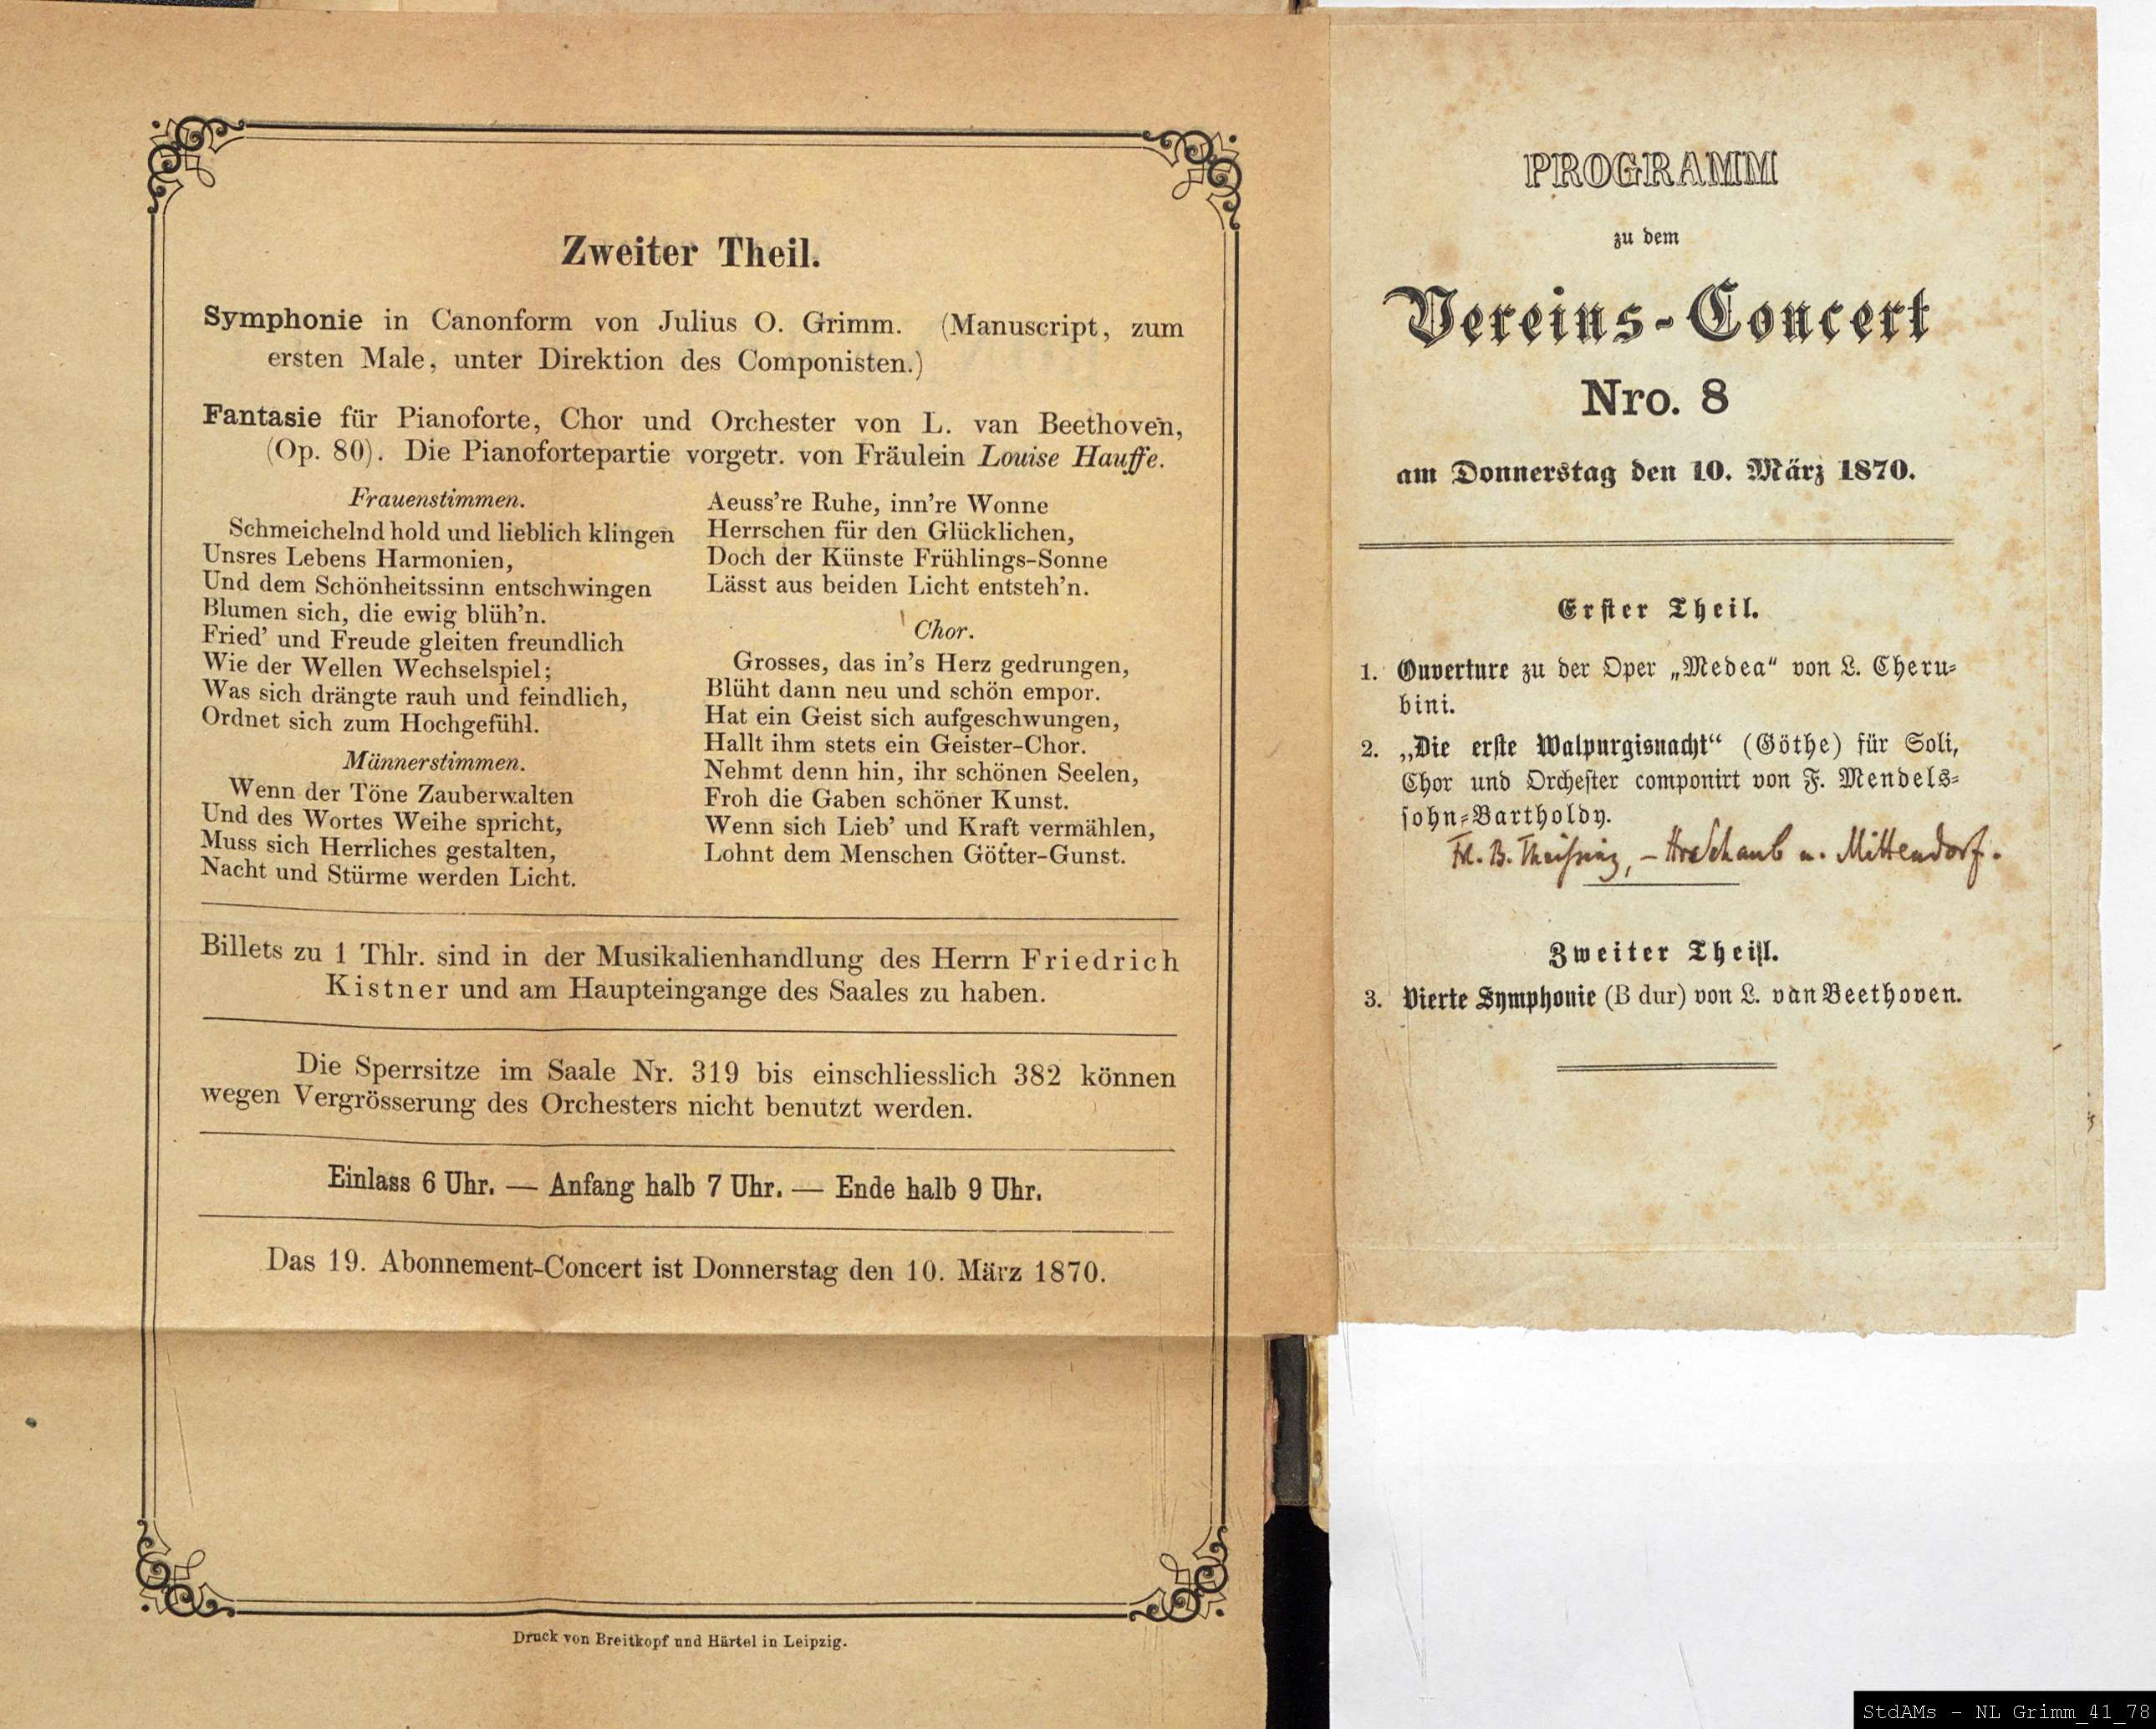 Zweiter Theil.
Symphonie in Canonform von Julius O. Grimm. (Manuscript, zum
ersten Male, unter Direktion des Componisten.)
Fantasie für Pianoforte, Chor und Orchester von L. van Beethoven,
(Op. 80). Die Pianofortepartie vorgetr. von Fräulein Louise Hauffe.
Frauenstimmen.
Schmeichelnd hold und lieblich klingen
Unsres Lebens Harmonien,
Und dem Schönheitssinn entschwingen
Blumen sich, die ewig blüh'n.
Fried' und Freude gleiten freundlich
Wie der Wellen Wechselspiel;
Was sich drängte rauh und feindlich,
Ordnet sich zum Hochgefühl.
Männerstimmen.
Wenn der Töne Zauberwalten
Und des Wortes Weihe spricht,
Muss sich Herrliches gestalten,
Nacht und Stürme werden Licht.
Aeuss're Ruhe, inn're Wonne
Herrschen für den Glücklichen,
Doch der Künste Frühlings-Sonne
Lässt aus beiden Licht entsteh'n.
Chor.
Grosses, das in's Herz gedrungen,
Blüht dann neu und schön empor.
Hat ein Geist sich aufgeschwungen,
Hallt ihm stets ein Geister-Chor.
Nehmt denn hin, ihr schönen Seelen,
Froh die Gaben schöner Kunst.
Wenn sich Lieb' und Kraft vermählen,
Lohnt dem Menschen Götter-Gunst.
Billets zu 1 Thlr. sind in der Musikalienhandlung des Herrn Friedrich
Kistner und am Haupteingange des Saales zu haben.
Die Sperrsitze im Saale Nr. 319 bis einschliesslich 382 können
wegen Vergrösserung des Orchesters nicht benutzt werden.
Einlass 6 Uhr. — Anfang halb 7 Uhr. — Ende halb 9 Uhr.
Das 19. Abonnement-Concert ist Donnerstag den 10. März 1870.
Druck von Breitkopf und Härtel in Leipzig.
PROGRAMM
zu dem
Vereins-Concert
Nro. 8
am Donnerstag den 10. März 1870.
Erster Theil.
1. Ouverture zu der Oper „Medea" von L. Cheru-
bini.
2. „Die erste Walpurgisnacht" (Göthe) für Soli,
Chor und Orchester componirt von F. Mendels-
sohn-Bartholdy.
Frl. B. Theissing, – Hr Schaub u. Mittendorf.
Zweiter Theil.
3. Vierte Symphonie (B dur) von L. van Beethoven.
StdAMs – NL Grimm_41_78